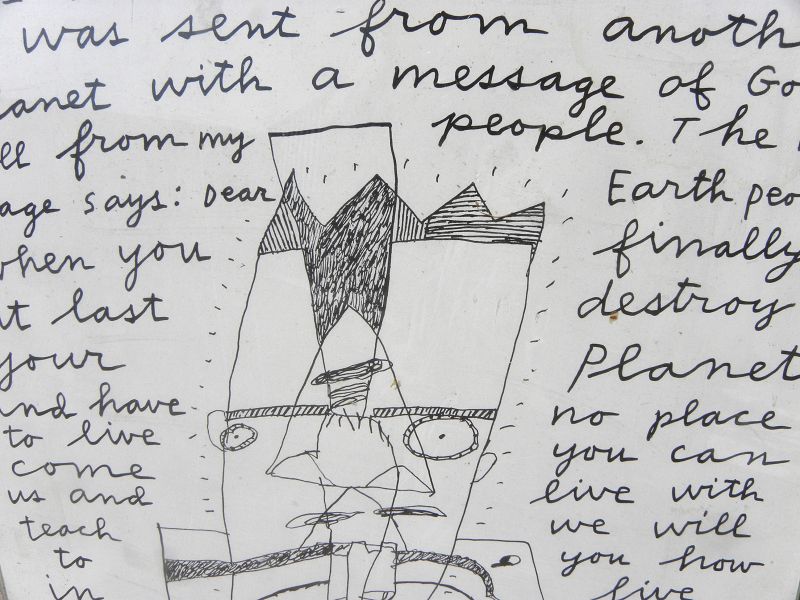 was sent from anoth
lanet with a message of Go
ll from my people. The
age says: Dear Earth peo
when you finally
at last destroy
your Planet
and have no place
to live you can
come live with
us and we will
teach you how
to live
in